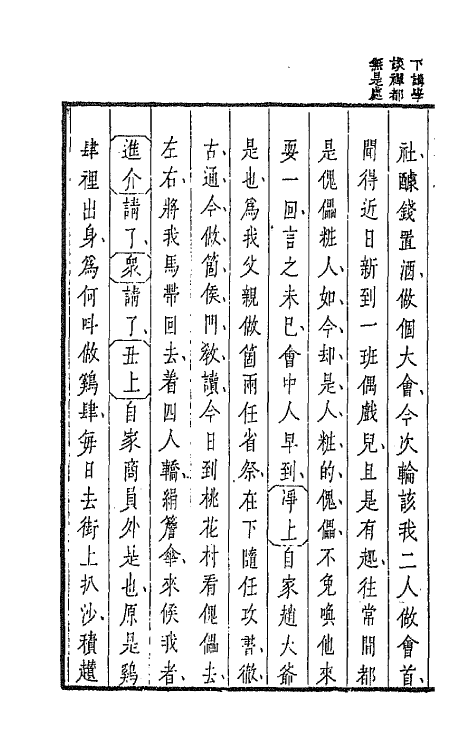 下講學
談禪都
無是處
社醵錢置酒做個大會今次輪該我二人做會首
聞得近日新到一班偶戲兒且是有趣往常間都
是傀儡粧人如今却是人粧的傀儡不免喚他來
耍一回言之未已會中人早到淨上自家趙大爺
是也爲我父親做箇兩任省祭在下隨任攻書徹
古通今做箇侯門教讀今日到桃花村看傀儡去
左右將我馬帶回去着四人轎絹簷傘來候我者
進介請了衆請了丑上自家商員外是也原是鷄
肆裡出身爲何呌做鷄肆每日去街上扒沙積趲